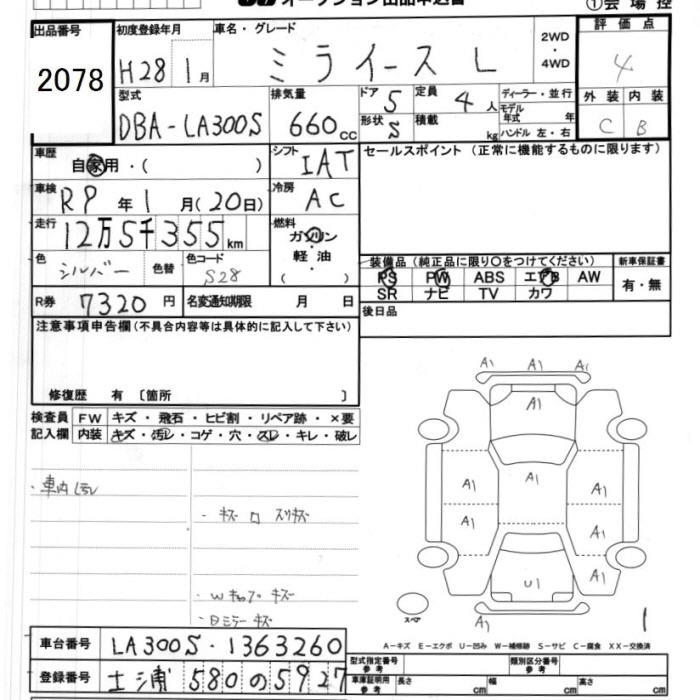 オークション出品申込書 ①会場控
出品番号 2078
初度登録年月 H28 1月
車名・グレード ミライース L 2WD・4WD
評価点 4
外装 C 内装 B
型式 DBA-LA300S
排気量 660cc
ドア 5 形状 S
定員 4人 積載 kg
ディーラー・並行
モデル年式 年
ハンドル 左・右
車歴 自家用・( )
シフト IAT
セールスポイント (正常に機能するものに限ります)
車検 R9年 1月(20日)
冷房 AC
走行 12万5千355km
燃料 ガソリン・軽油・( )
色 シルバー 色替 色コード S28
装備品 (純正品に限り○をつけてください) 新車保証書
PS PW ABS エアB AW 有・無
SR ナビ TV カワ
R券 7320円 名変通知期限 月 日
後日品
注意事項申告欄(不具合内容等は具体的に記入して下さい)
修復歴 有 〔箇所 〕
検査員 FW キズ・飛石・ヒビ割・リペア跡・×要
記入欄 内装 キズ・汚レ・コゲ・穴・スレ・キレ・破レ
・車内汚レ
・キズ ロ スリキズ
・Wキャップ キズ
・Dミラー キズ
A1 A1 A1
A1
A1 A1 A1
A1 A1
U1 A1
A1
スペア
1
A-キズ E-エクボ U-凹み W-補修跡 S-サビ C-腐食 XX-交換済
車台番号 LA300S-1363260
登録番号 土浦 580 の 5927
型式指定番号 参考 類別区分番号 参考
車庫証明用 参考 長さ cm 幅 cm 高さ cm